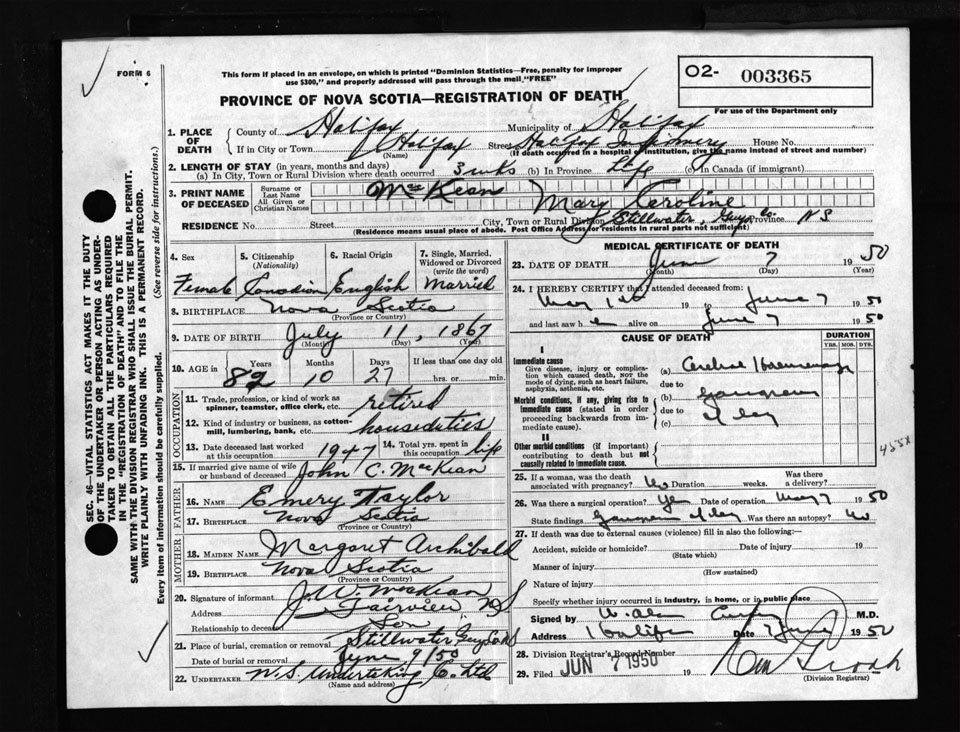 FORM 6
This form if placed in an envelope, on which is printed "Dominion Statistics—Free, penalty for improper
use $300," and properly addressed will pass through the mail "FREE"
O2- 003365
PROVINCE OF NOVA SCOTIA—REGISTRATION OF DEATH
For use of the Department only
1. PLACE OF DEATH
County of Halifax Municipality of Halifax
If in City or Town Halifax Street Halifax Infirmary House No.
(Name) (If death occurred in a hospital or institution, give the name instead of street and number)
2. LENGTH OF STAY (in years, months and days)
(a) In City, Town or Rural Division where death occurred 3 wks (b) In Province Life (c) In Canada (if immigrant)
3. PRINT NAME OF DECEASED
Surname or Last Name MacKean
All Given or Christian Names Mary Caroline
RESIDENCE No. Street City, Town or Rural Division Stillwater, Guys. Co. Province NS
(Residence means usual place of abode. Post Office Address for residents in rural parts not sufficient)
4. Sex Female
5. Citizenship (Nationality) Canadian
6. Racial Origin English
7. Single, Married, Widowed or Divorced (write the word) Married
8. BIRTHPLACE Nova Scotia
(Province or Country)
9. DATE OF BIRTH July 11, 1867
(Month) (Day) (Year)
10. AGE in Years 82 Months 10 Days 27 If less than one day old hrs. or min.
OCCUPATION
11. Trade, profession, or kind of work as spinner, teamster, office clerk, etc. retired
12. Kind of industry or business, as cotton-mill, lumbering, bank, etc. houseduties
13. Date deceased last worked at this occupation 1947
14. Total yrs. spent in this occupation life
15. If married give name of wife or husband of deceased John C. MacKean
FATHER
16. Name Emery Taylor
17. Birthplace Nova Scotia
(Province or Country)
MOTHER
18. Maiden Name Margaret Archibald
19. Birthplace Nova Scotia
(Province or Country)
20. Signature of informant J. W. MacKean
Address Fairview NS
Relationship to deceased Son
21. Place of burial, cremation or removal Stillwater Guys Co NS
Date of burial or removal June 9/50
22. UNDERTAKER N.S. Undertaking Co. Ltd
(Name and address)
MEDICAL CERTIFICATE OF DEATH
23. DATE OF DEATH June 7 1950
(Month) (Day) (Year)
24. I HEREBY CERTIFY that I attended deceased from:
May 1st 19 to June 7 1950
and last saw h e alive on June 7 1950
CAUSE OF DEATH
DURATION
YRS. MOS. DYS.
I
Immediate cause
Give disease, injury or complication which caused death, NOT the mode of dying, such as heart failure, asphyxia, asthenia, etc.
(a) Cerebral Haemorrhage
due to
Morbid conditions, if any, giving rise to immediate cause (stated in order proceeding backwards from immediate cause).
(b) gangrene
due to of leg
(c)
II
Other morbid conditions (if important) contributing to death but not causally related to immediate cause.
455X
25. If a woman, was the death associated with pregnancy? No Duration weeks. Was there a delivery?
26. Was there a surgical operation? Yes Date of operation May 7 1950
State findings gangrene of leg Was there an autopsy? no
27. If death was due to external causes (violence) fill in also the following:—
Accident, suicide or homicide? Date of injury 19
(State which)
Manner of injury
(How sustained)
Nature of injury
Specify whether injury occurred in industry, in home, or in public place
Signed by W. Alan Curry M.D.
Address Halifax Date 7 June 1950
28. Division Registrar's Record Number
29. Filed JUN 7 1950 19
(Division Registrar)
SEC. 46—VITAL STATISTICS ACT MAKES IT THE DUTY
OF THE UNDERTAKER OR PERSON ACTING AS UNDER-
TAKER TO OBTAIN ALL THE PARTICULARS REQUIRED
IN THE "REGISTRATION OF DEATH" AND TO FILE THE
SAME WITH THE DIVISION REGISTRAR WHO SHALL ISSUE THE BURIAL PERMIT.
WRITE PLAINLY WITH UNFADING INK. THIS IS A PERMANENT RECORD.
Every item of information should be carefully supplied. (See reverse side for instructions.)